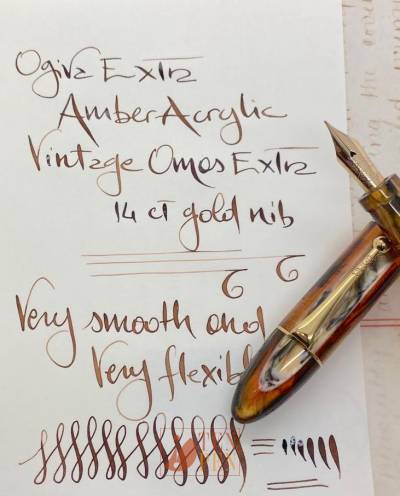 Ogiva Extra
Amber Acrylic
Vintage Omas Extra
14 ct gold nib
Very smooth and
Very flexib